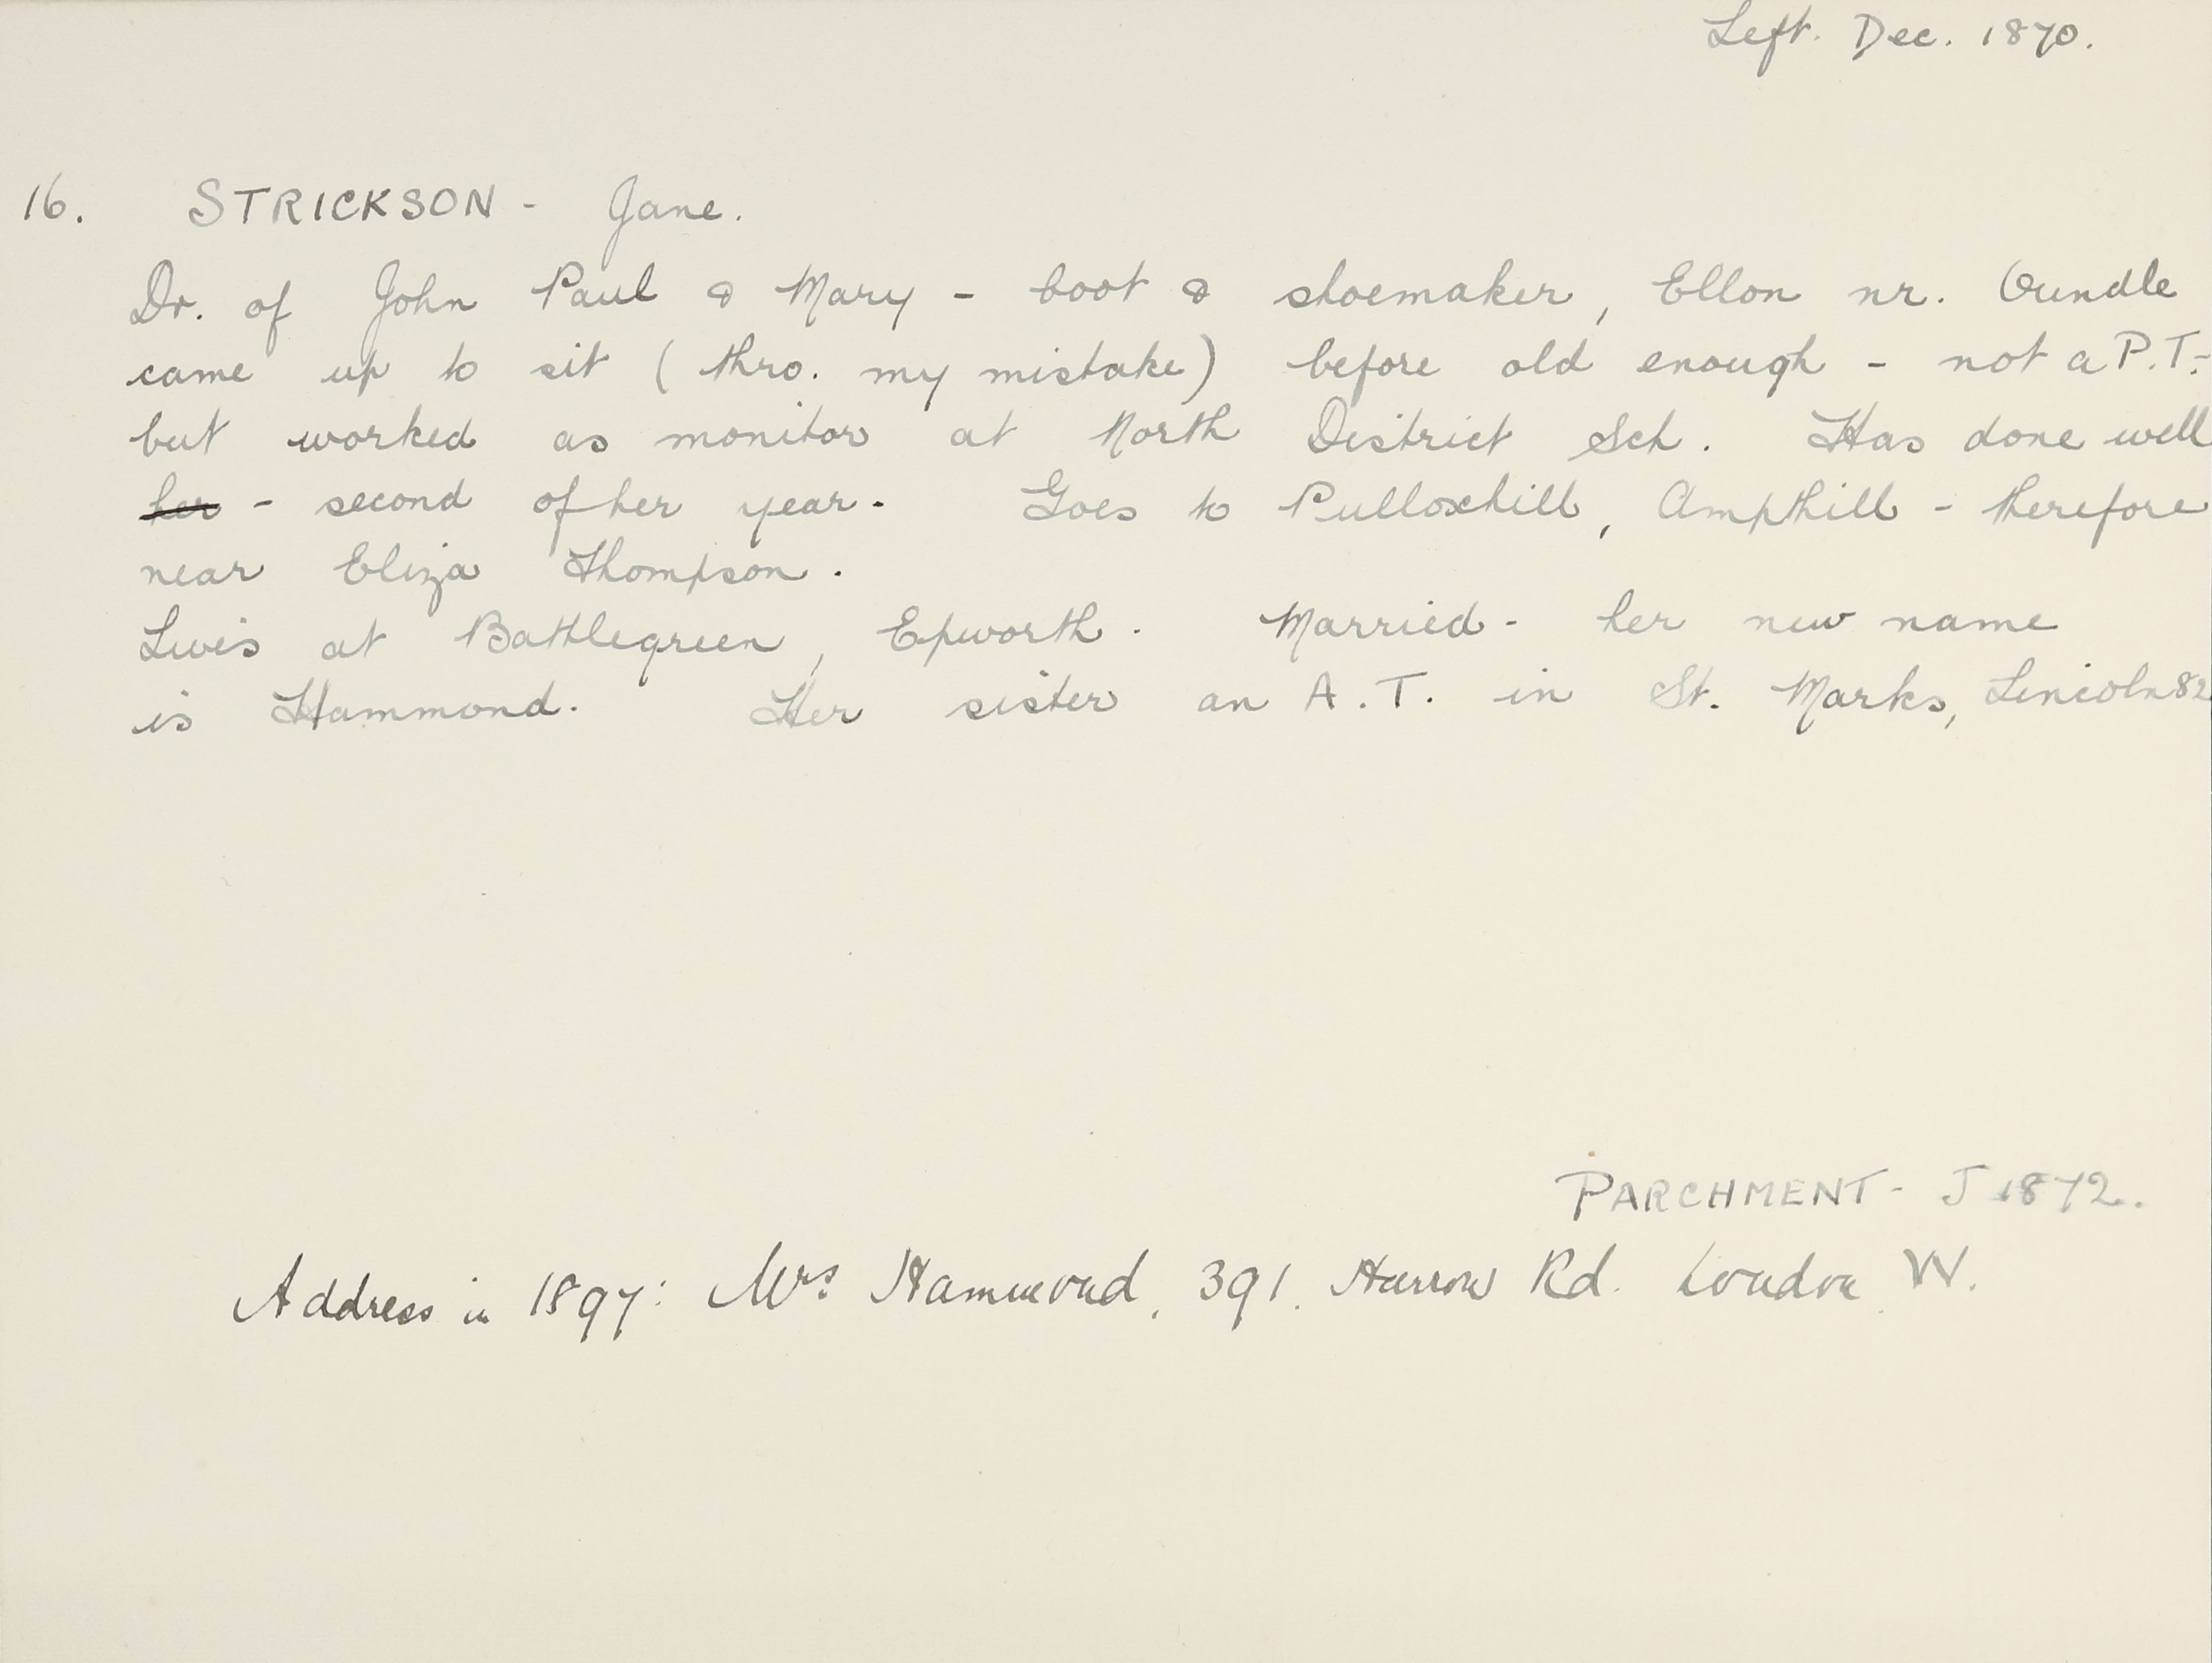 Left. Dec. 1870.
16. STRICKSON - Jane.
Dr. of John Paul & Mary - boot & shoemaker, Ellon nr. Oundle
came up to sit (thro. my mistake) before old enough - not a P.T.-
but worked as monitor at North District Sch. Has done well
her - second of her year. Goes to Pulloxhill, Ampthill - therefore
near Eliza Thompson.
Lives at Battlegreen, Epworth. Married - her new name
is Hammond. Her sister an A.T. in St. Marks, Lincoln 82
PARCHMENT - J 1872.
Address in 1897: Mrs Hammond, 391. Harrow Rd. London. W.